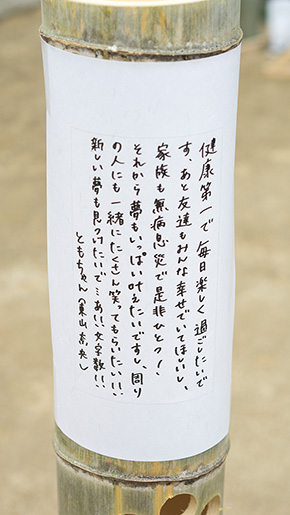 健康第一で毎日楽しく過ごしたいで
す、あと友達もみんな幸せでいてほしいし、
家族も無病息災で是非ひとつ!
それから夢もいっぱい叶えたいですし、周り
の人にも一緒にたくさん笑ってもらいたい!!
新しい夢も見つけたいで…あ!!文字数!!
ともちゃん(東山奈央)